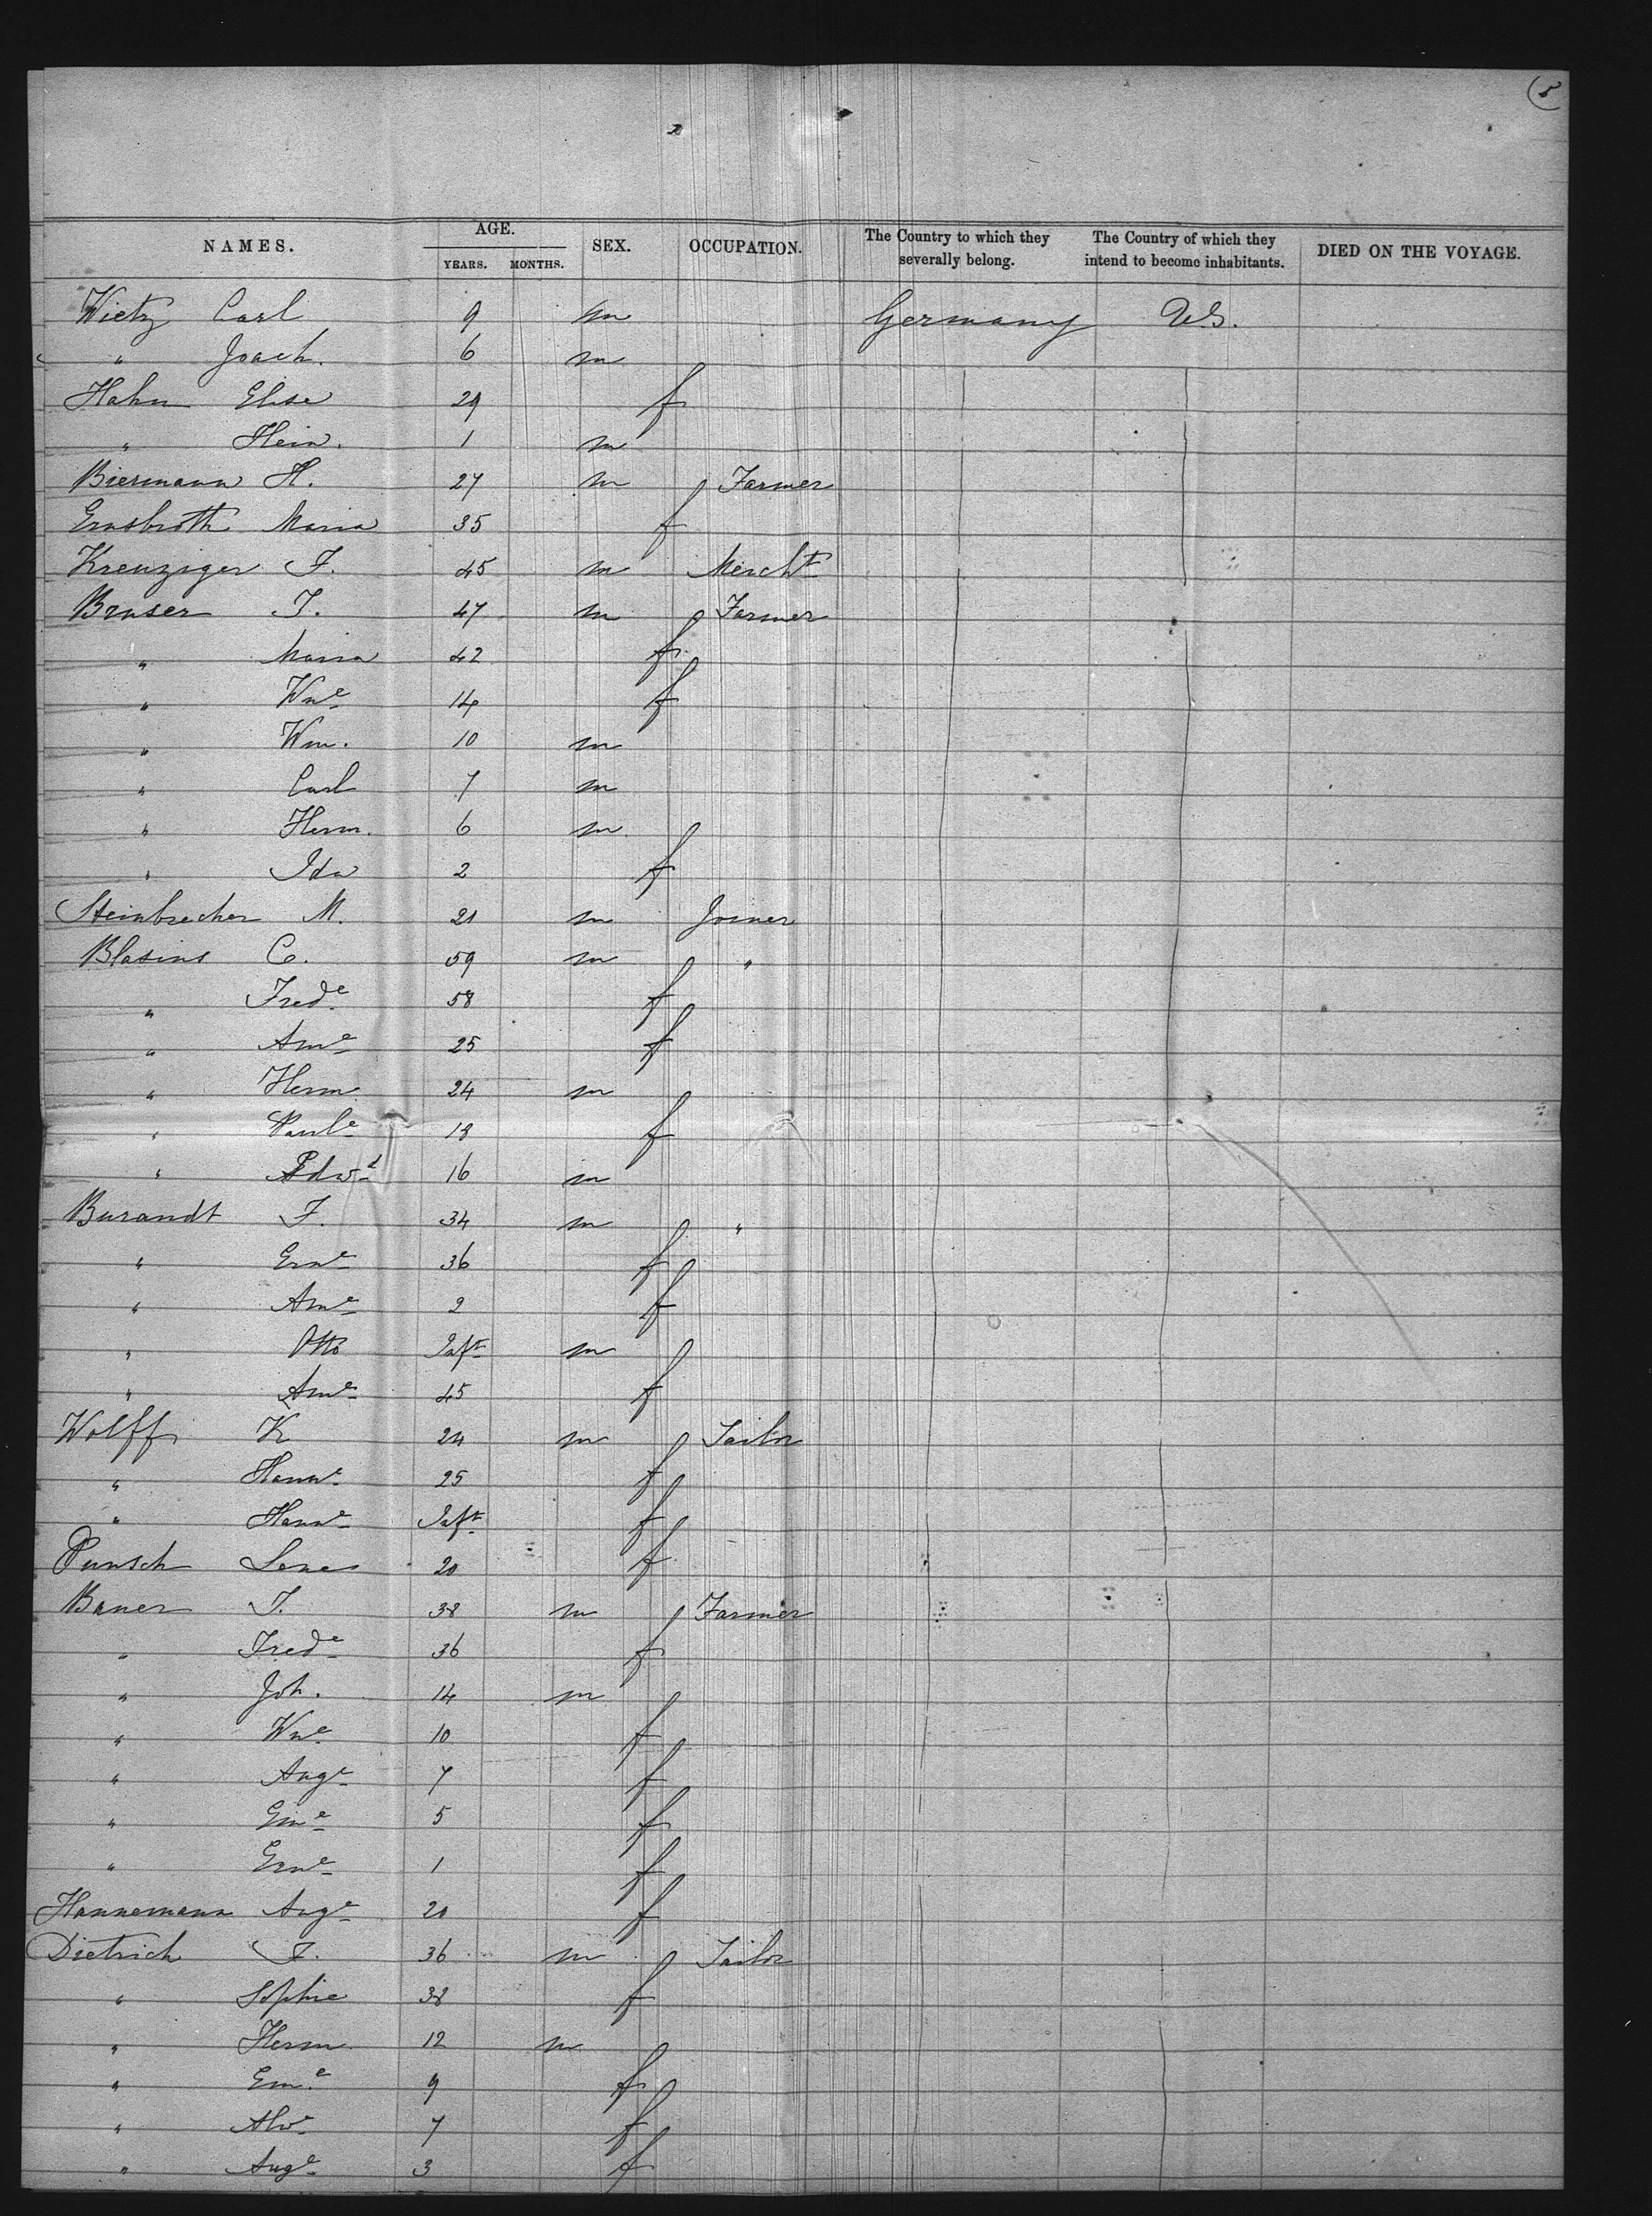 5
NAMES. AGE. SEX. OCCUPATION. The Country to which they severally belong. The Country of which they intend to become inhabitants. DIED ON THE VOYAGE.
YEARS. MONTHS.
Wietz Carl 9 m Germany U.S.
" Joach. 6 m
Hahn Elise 29 f
" Hein. 1 m
Biermann H. 27 m Farmer
Ernsbroth Maria 35 f
Kreuziger F. 45 m Mercht
Bruser J. 47 m Farmer
" Maria 42 f
" Wne 14 f
" Wm. 10 m
" Carl 7 m
" Herm. 6 m
" Ida 2 f
Steinbrecher M. 21 m Joiner
Blasius C. 59 m "
" Frede 58 f
" Ame 25 f
" Herm. 24 m
" Paule 18 f
" Edwd 16 m
Burandt F. 34 m "
" Erne 36 f
" Ame 2 f
" Otto Inft m
" Ame 45 f
Wolff K 24 m Tailor
" Hanne 25 f
" Hanne Inft f
Punsch Lene 20 f
Bauer J. 38 m Farmer
" Frede 36 f
" Joh. 14 m
" Wne 10 f
" Auge 7 f
" Eme 5 f
" Erne 1 f
Hannemann Auge 20 f
Dietrich F. 36 m Tailor
" Sophie 38 f
" Herm 12 m
" Eme 9 f
" Alve 7 f
" Auge 3 f